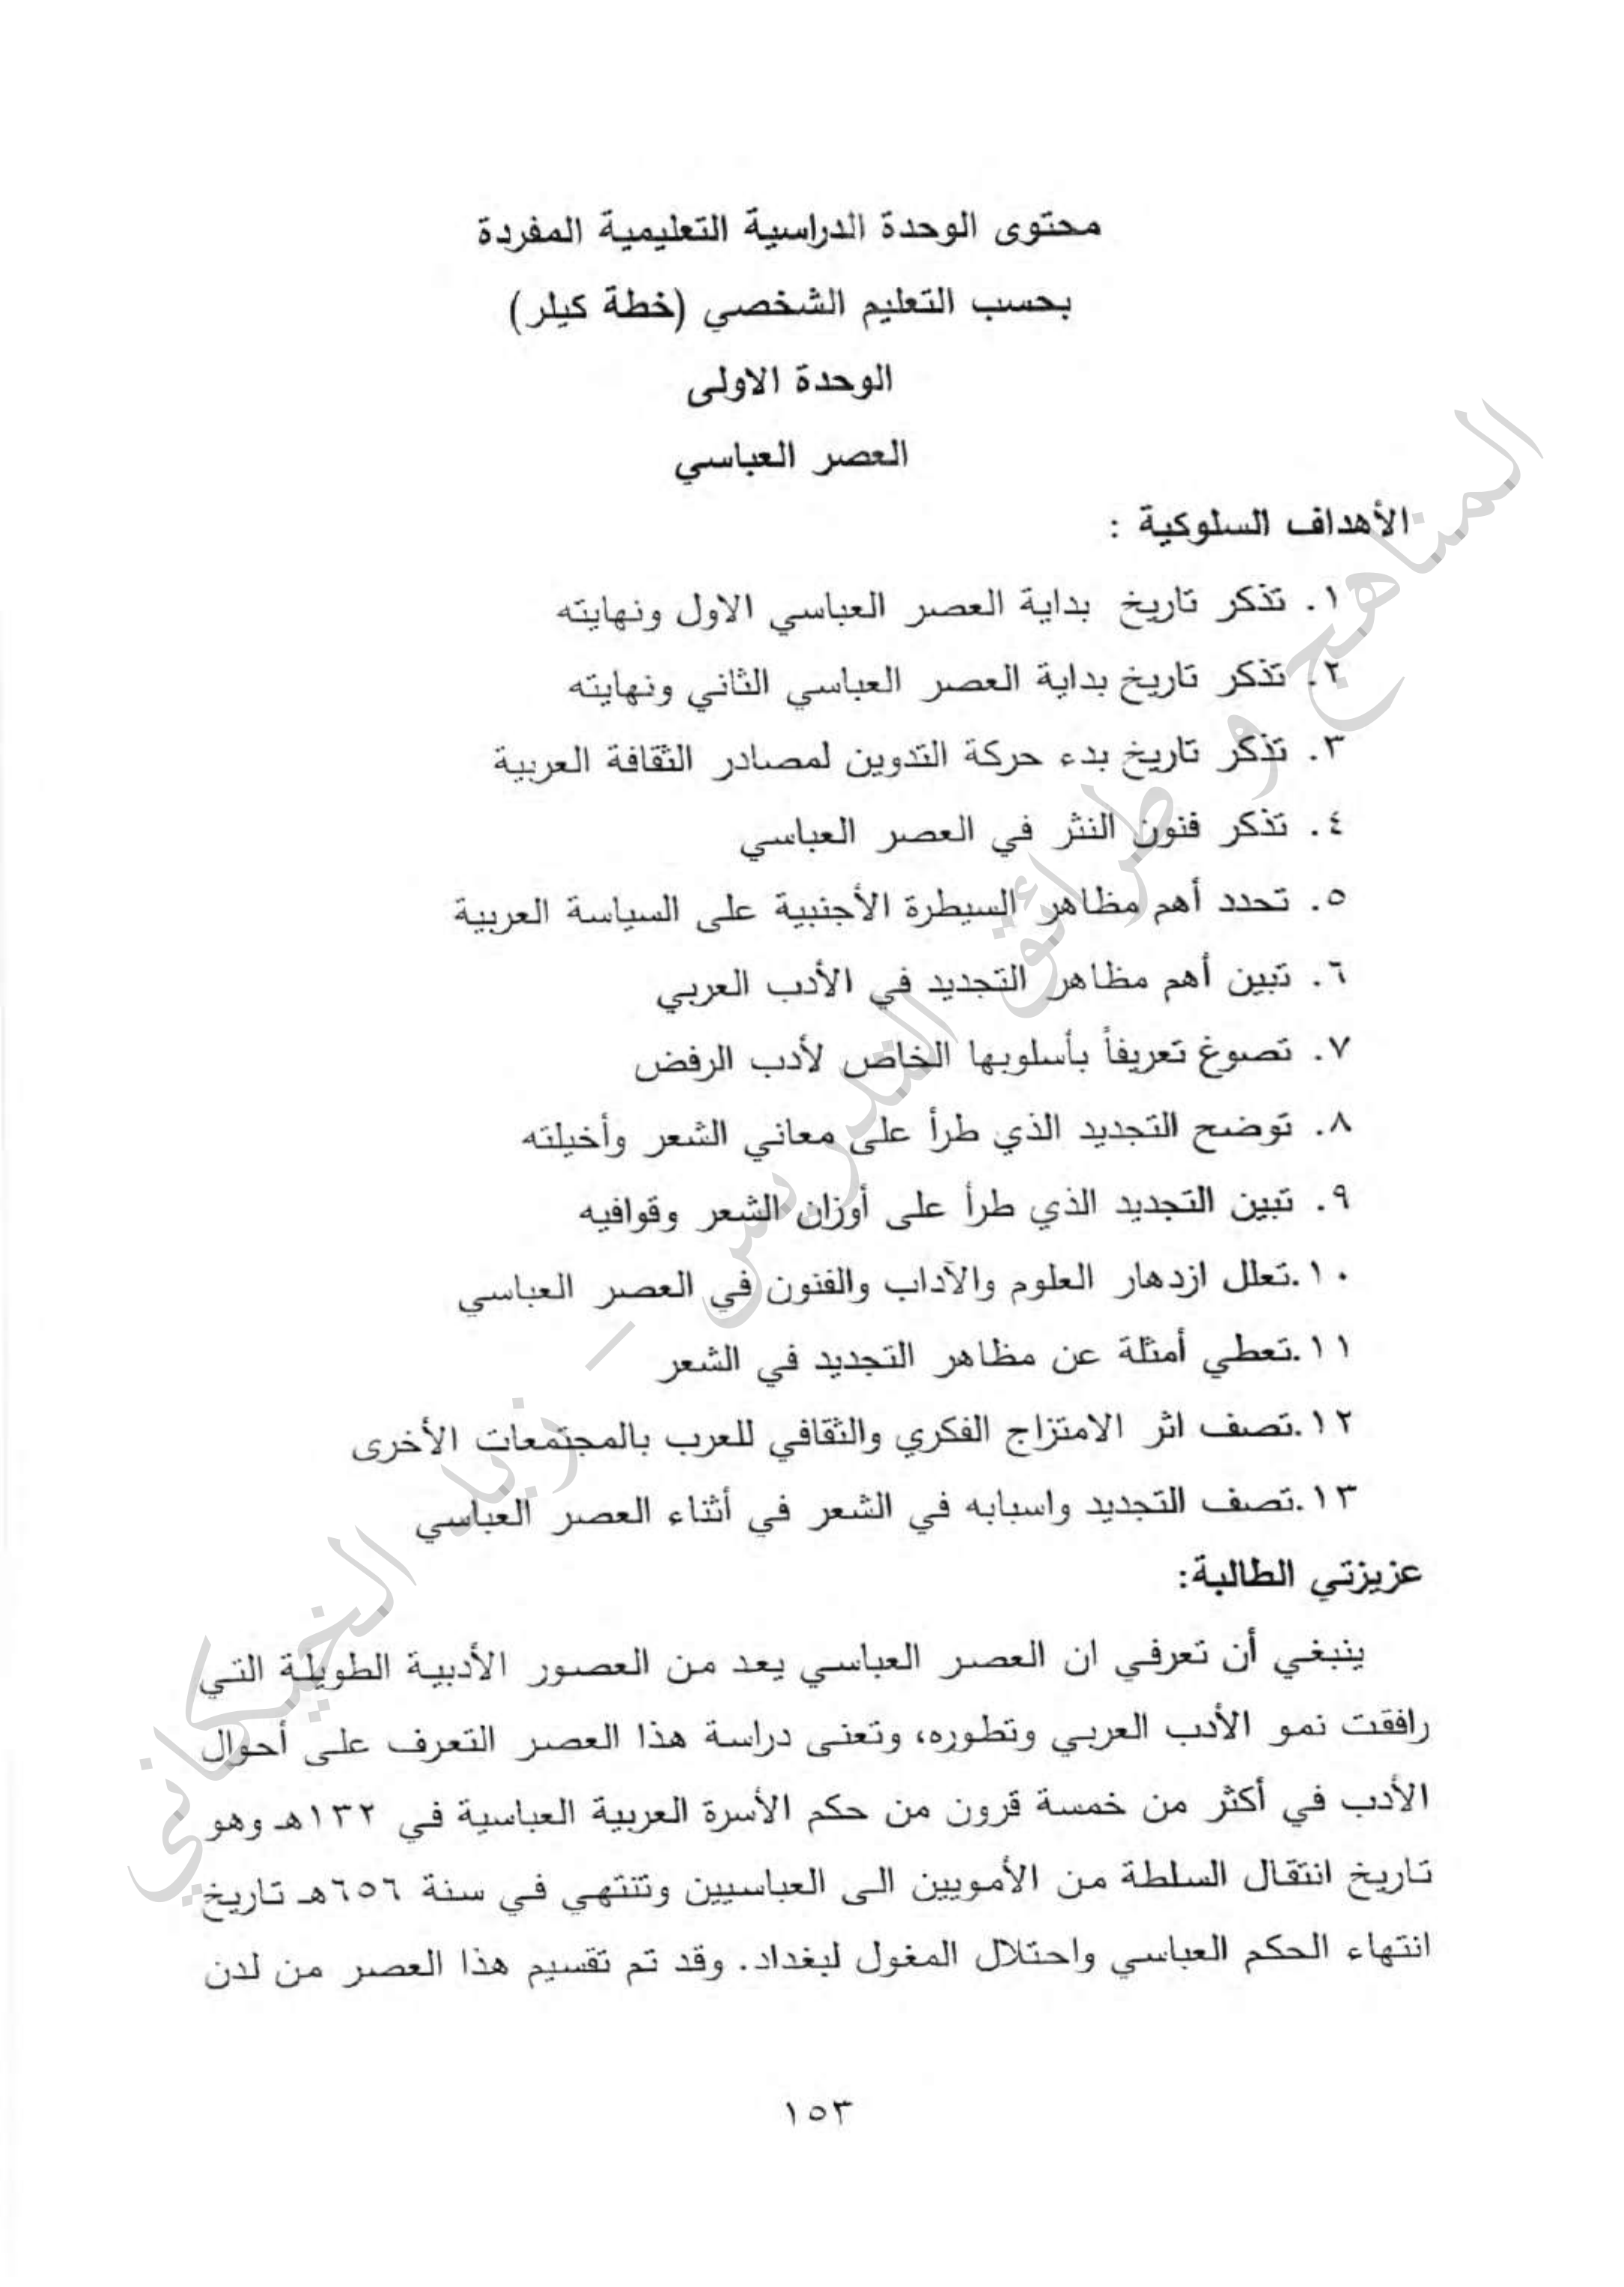 محتوى الوحدة الدراسية التعليمية المفردة
بحسب التعليم الشخصي (خطة كيلر)
الوحدة الاولى
العصر العباسي
الأهداف السلوكية :
١. تذكر تاريخ بداية العصر العباسي الاول ونهايته
٢. تذكر تاريخ بداية العصر العباسي الثاني ونهايته
٣. تذكر تاريخ بدء حركة التدوين لمصادر الثقافة العربية
٤. تذكر فنون النثر في العصر العباسي
٥. تحدد أهم مظاهر السيطرة الأجنبية على السياسة العربية
٦. تبين أهم مظاهر التجديد في الأدب العربي
٧. تصوغ تعريفاً بأسلوبها الخاص لأدب الرفض
٨. توضح التجديد الذي طرأ على معاني الشعر وأخيلته
٩. تبين التجديد الذي طرأ على أوزان الشعر وقوافيه
١٠.تعلل ازدهار العلوم والآداب والفنون في العصر العباسي
١١.تعطي أمثلة عن مظاهر التجديد في الشعر
١٢.تصف اثر الامتزاج الفكري والثقافي للعرب بالمجتمعات الأخرى
١٣.تصف التجديد واسبابه في الشعر في أثناء العصر العباسي
عزيزتي الطالبة:
ينبغي أن تعرفي ان العصر العباسي يعد من العصور الأدبية الطويلة التي
رافقت نمو الأدب العربي وتطوره، وتعنى دراسة هذا العصر التعرف على أحوال
الأدب في أكثر من خمسة قرون من حكم الأسرة العربية العباسية في ١٣٢هـ وهو
تاريخ انتقال السلطة من الأمويين الى العباسيين وتنتهي في سنة ٦٥٦هـ تاريخ
انتهاء الحكم العباسي واحتلال المغول لبغداد. وقد تم تقسيم هذا العصر من لدن
١٥٣
المناهج و طرائق التدريس – زيد الخيكاني